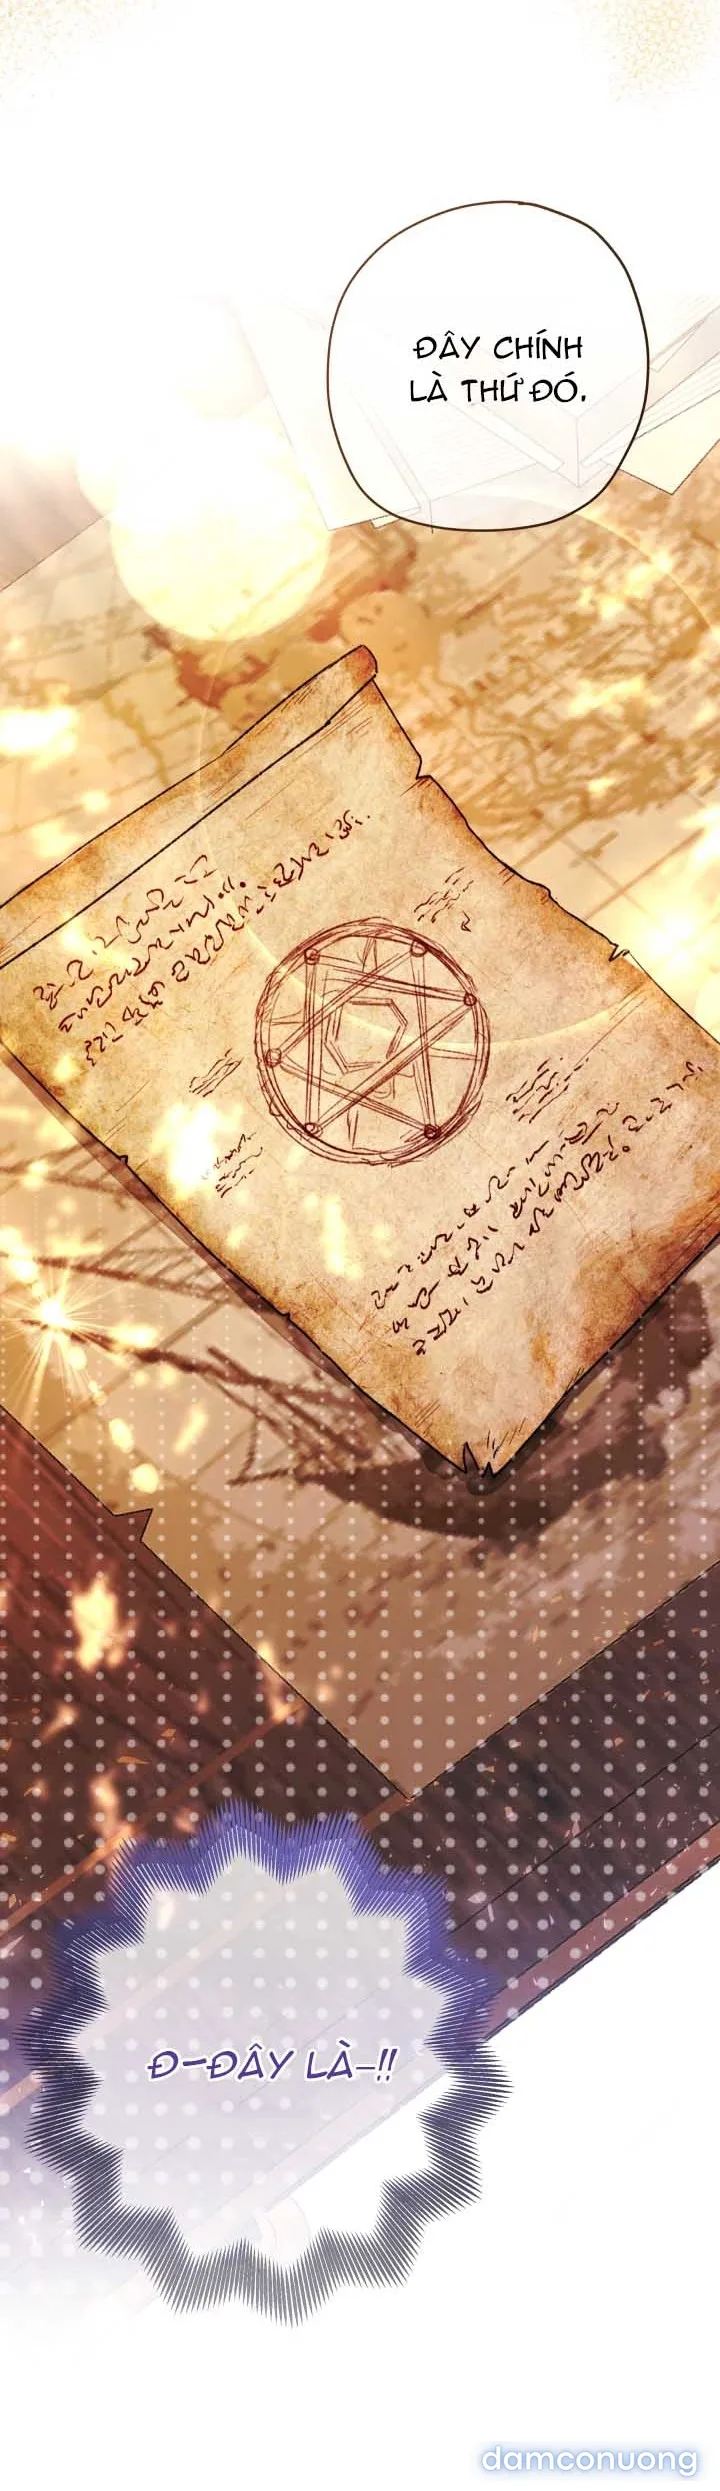 ĐÂY CHÍNH
LÀ THỨ ĐÓ.
Đ-ĐÂY LÀ-!!
damconuong